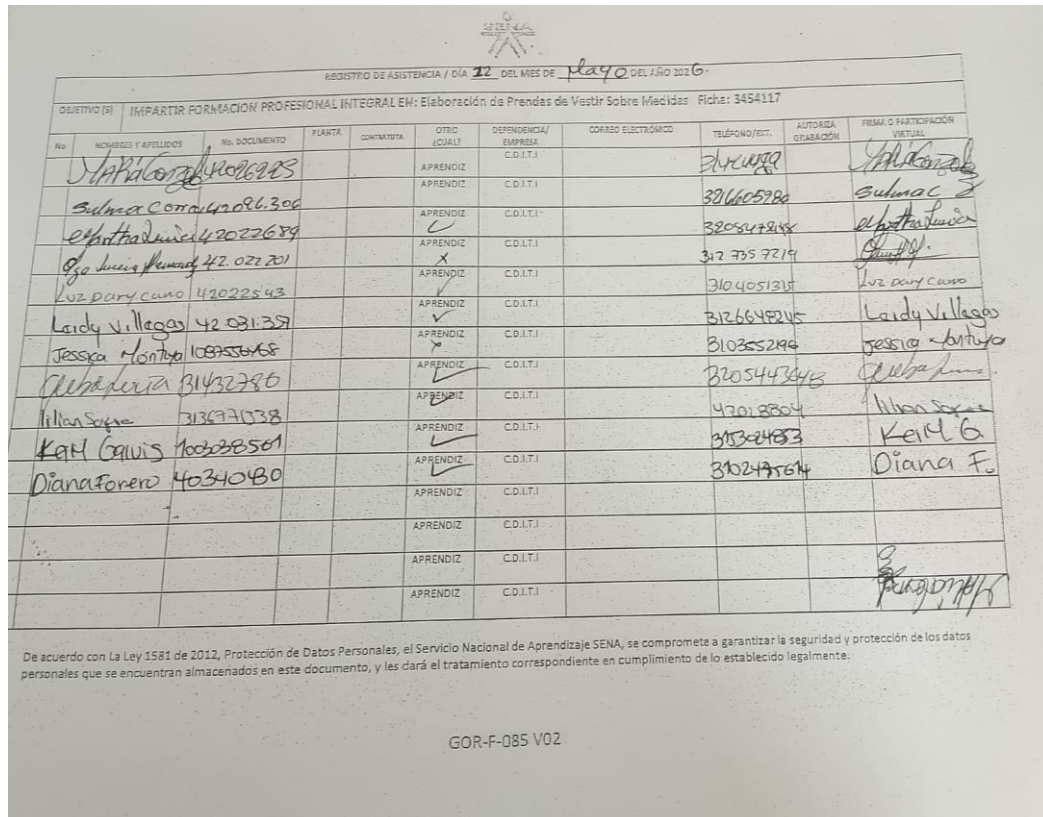 SENA
REGISTRO DE ASISTENCIA / DÍA 22 DEL MES DE Mayo DEL AÑO 2026.
OBJETIVO (S) IMPARTIR FORMACION PROFESIONAL INTEGRAL EN: Elaboración de Prendas de Vestir Sobre Medidas Ficha: 3454117
No NOMBRES Y APELLIDOS No. DOCUMENTO PLANTA CONTRATISTA OTRO ¿CUÁL? DEPENDENCIA/ EMPRESA CORREO ELECTRÓNICO TELÉFONO/EXT. AUTORIZA GRABACIÓN FIRMA O PARTICIPACIÓN VIRTUAL
APRENDIZ C.D.I.T.I
Sulma 42096.306 APRENDIZ C.D.I.T.I 3216605980 Sulma C
42022689 APRENDIZ C.D.I.T.I
Lucia 42.022.201 APRENDIZ X C.D.I.T.I 312 735 7219
Luz Dary Cano 42022543 APRENDIZ C.D.I.T.I Luz Dary Cano
Leidy Villegas 42.031.359 APRENDIZ C.D.I.T.I 3126648245 Leidy Villegas
Jessica Montoya APRENDIZ C.D.I.T.I 3103552194 Jessica Montoya
31432780 APRENDIZ C.D.I.T.I
lilian 3136771338 APRENDIZ C.D.I.T.I 42028804 lilian
Galvis 1003038561 APRENDIZ C.D.I.T.I 3153024853 G.
Diana Forero 40340430 APRENDIZ C.D.I.T.I 3102475614 Diana F.
APRENDIZ C.D.I.T.I
APRENDIZ C.D.I.T.I
APRENDIZ C.D.I.T.I
APRENDIZ C.D.I.T.I
De acuerdo con La Ley 1581 de 2012, Protección de Datos Personales, el Servicio Nacional de Aprendizaje SENA, se compromete a garantizar la seguridad y protección de los datos
personales que se encuentran almacenados en este documento, y les dará el tratamiento correspondiente en cumplimiento de lo establecido legalmente.
GOR-F-085 V02